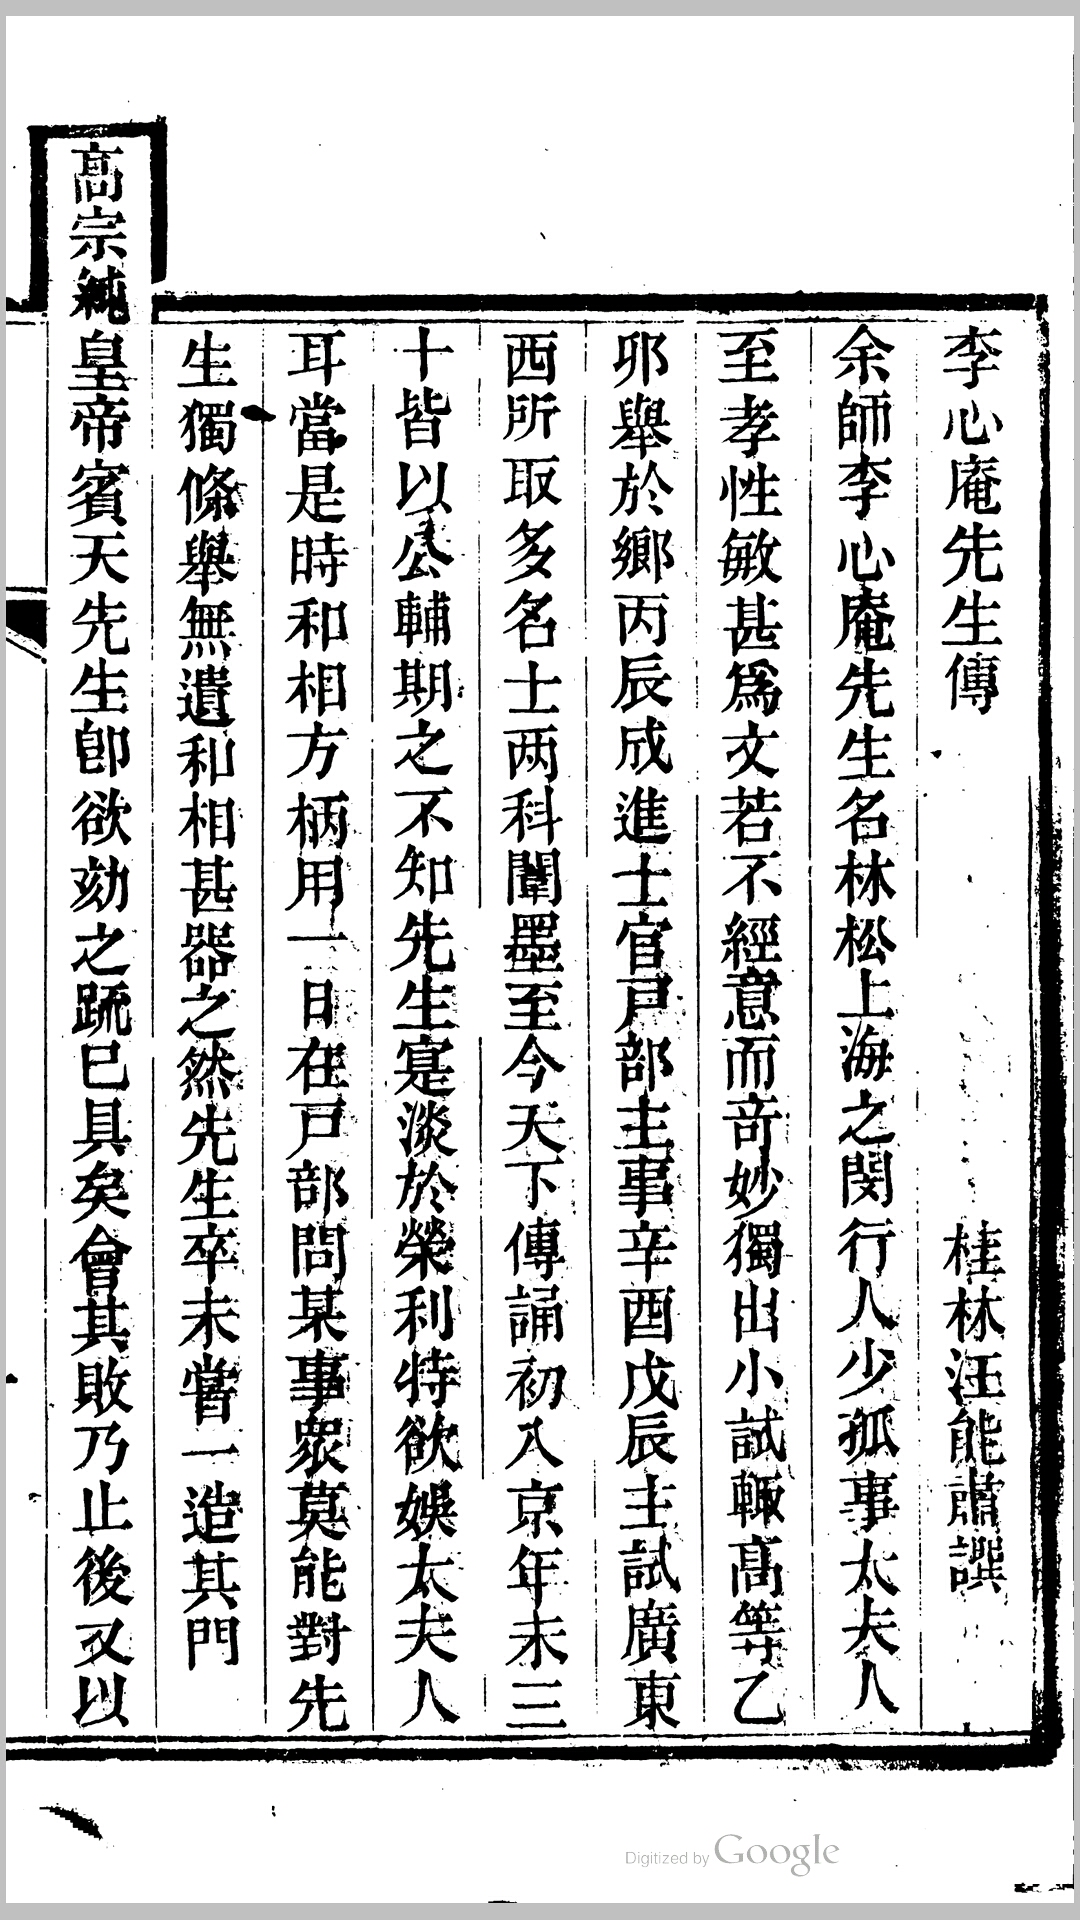 李心庵先生傳 桂林汪能肅譔
余師李心庵先生名林松上海之閔行人少孤事太夫人
至孝性敏甚爲文若不經意而奇妙獨出小試輒高等乙
卯舉於鄉丙辰成進士官戸部主事辛酉戊辰主試廣東
西所取多名士两科闈墨至今天下傳誦初入京年未三
十皆以公輔期之不知先生寔淡於榮利特欲娛太夫人
耳當是時和相方柄用一日在戸部問某事衆莫能對先
生獨條舉無遺和相甚器之然先生卒未嘗一造其門
高宗純皇帝賓天先生卽欲劾之疏已具矣會其敗乃止後又以
Digitized by Google